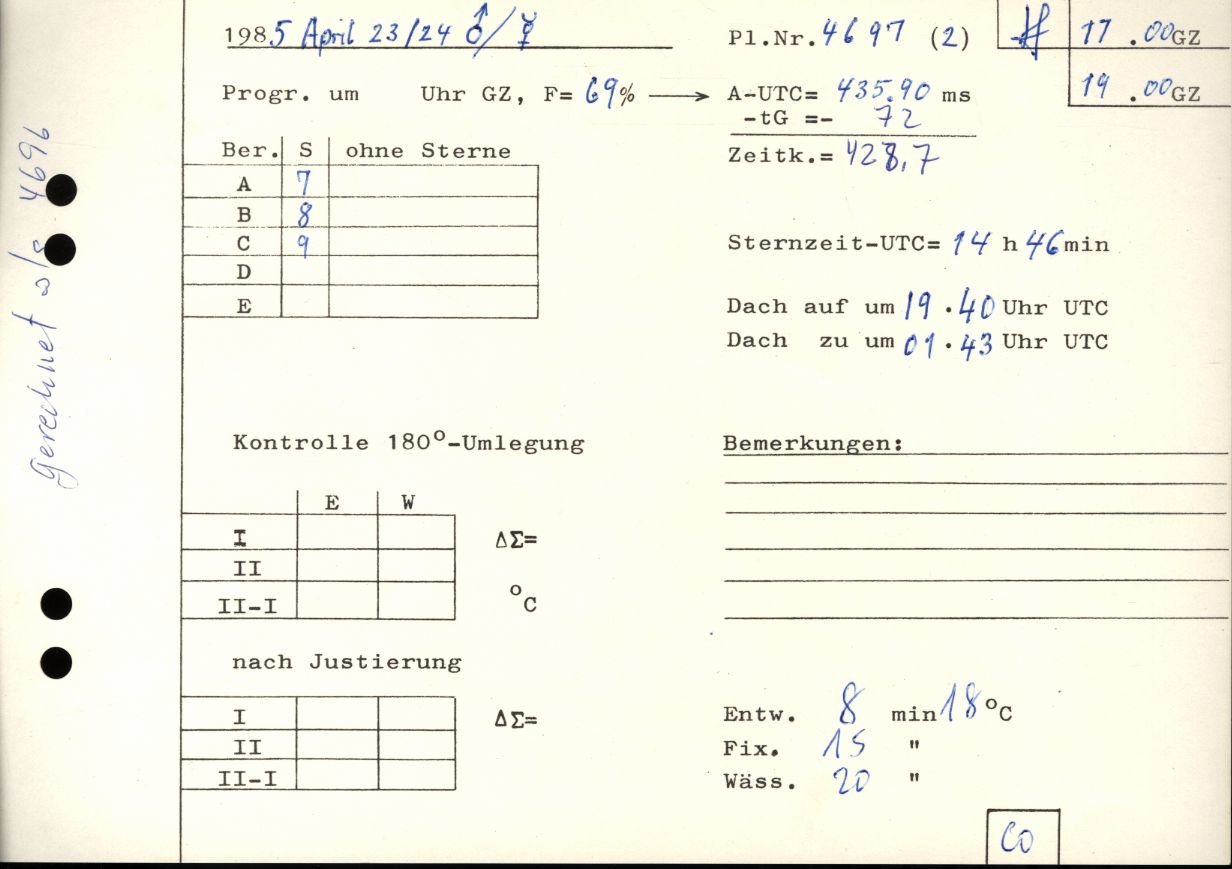 1985 April 23/24 ♂/☿
Pl.Nr. 4697 (2)
17 .00 GZ
19 .00 GZ
Progr. um Uhr GZ, F= 69% ⟶ A-UTC= 435.90 ms
-tG =- 72
Zeitk.= 428,7
Ber. S ohne Sterne
A 7
B 8
C 9
D
E
Sternzeit-UTC= 14 h 46 min
Dach auf um 19 . 40 Uhr UTC
Dach zu um 01 . 43 Uhr UTC
gerechnet als 4696
Kontrolle 180°-Umlegung
E W
I ΔΣ=
II
II-I °C
nach Justierung
I ΔΣ=
II
II-I
Bemerkungen:
Entw. 8 min 18 °C
Fix. 15 "
Wäss. 20 "
CO